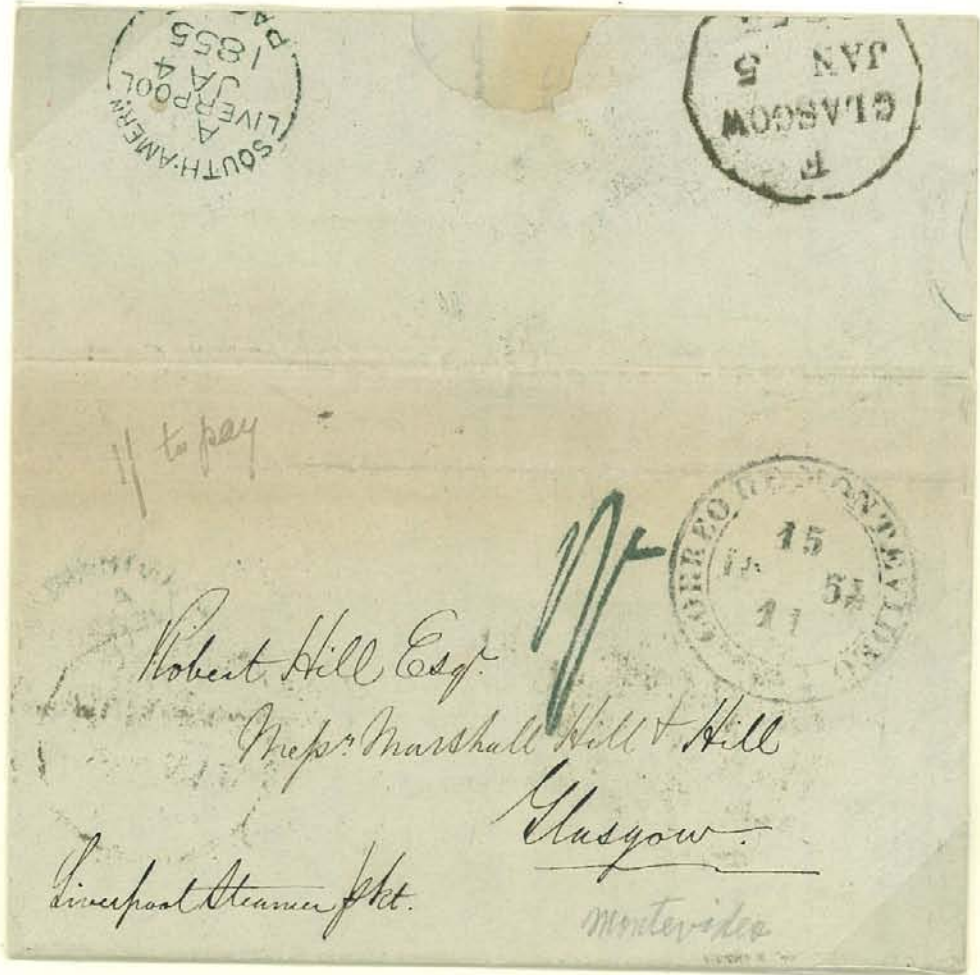 SOUTH-AMERN. PAC
LIVERPOOL
A
JA 4
1855
F
GLASGOW
JAN 5
1/ to pay
CORREO DE MONTEVIDEO
15
11
Robert Hill Esqr.
Messrs Marshall Hill & Hill
Glasgow.
Liverpool Steamer pkt.
Montevideo